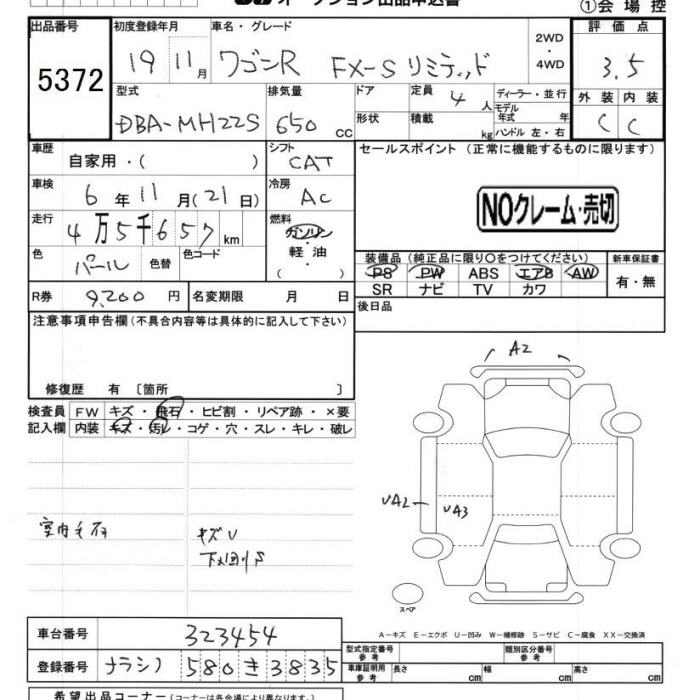 オークション出品申込書
①会場控
出品番号 初度登録年月 車名・グレード 2WD・4WD 評価点
5372 19 11月 ワゴンR FX-Sリミテッド 3.5
型式 排気量 ドア 定員 4人 ディーラー・並行 外装 内装
DBA-MH22S 650cc 形状 積載 kg モデル年式 年 ハンドル 左・右 C C
車歴 自家用・( ) シフト CAT セールスポイント (正常に機能するものに限ります)
車検 6年11月(21日) 冷房 AC
NOクレーム・売切
走行 4万5千657km 燃料 ガソリン 軽油 ( )
色 パール 色替 色コード
装備品 (純正品に限り○をつけてください) 新車保証書
PS PW ABS エアB AW 有・無
SR ナビ TV カワ
R券 9,200円 名変期限 月 日 後日品
注意事項申告欄 (不具合内容等は具体的に記入して下さい)
修復歴 有 〔箇所 〕
検査員 FW キズ・飛石・ヒビ割・リペア跡・×要
記入欄 内装 キズ・汚レ・コゲ・穴・スレ・キレ・破レ
A2
UA2 UA3
キズU
スペア
A-キズ E-エクボ U-凹み W-補修跡 S-サビ C-腐食 XX-交換済
車台番号 323454
登録番号 ナラシノ 580 き 3835
型式指定番号 参考 類別区分番号 参考
車庫証明用 参考 長さ cm 幅 cm 高さ cm
希望出品コーナー (コーナーは各会場により異なります。)